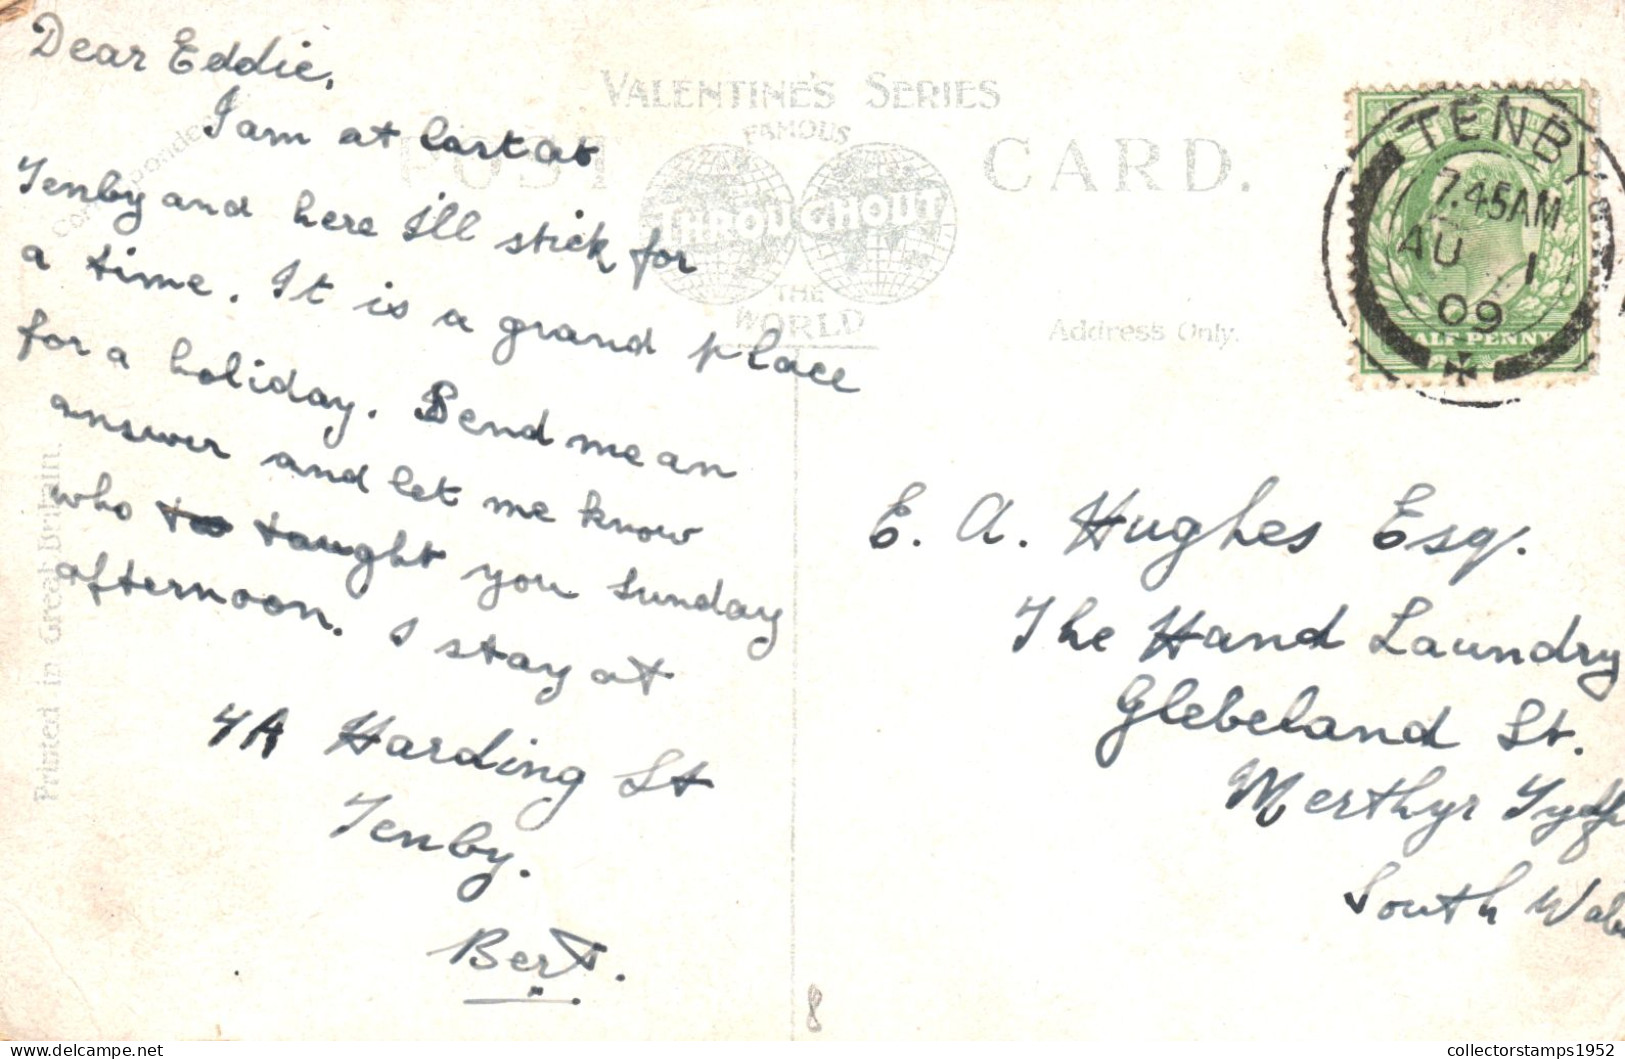 Dear Eddie,
I am at last at
Tenby and here I'll stick for
a time. It is a grand place
for a holiday. Send me an
answer and let me know
who to taught you Sunday
afternoon. I stay at
4A Harding St
Tenby.
Bert.
Correspondence
Printed in Great Britain.
VALENTINE'S SERIES
POST CARD.
FAMOUS
THROUGHOUT
THE
WORLD
Address Only.
TENBY
7.45AM
AU 1
09
HALF PENNY
E. A. Hughes Esq.
The Hand Laundry
Glebeland St.
Merthyr Tydf
South Wales
8
collectorstamps1952